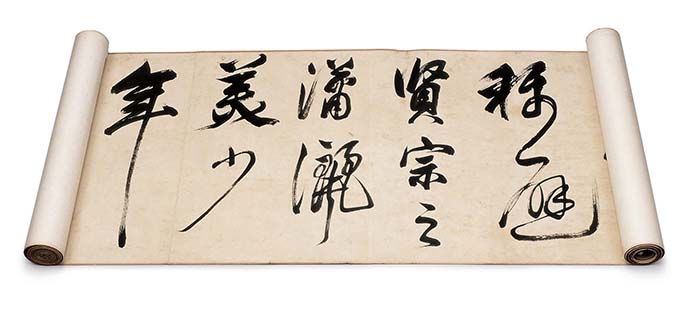 稱避
賢宗之
瀟灑
美少
年